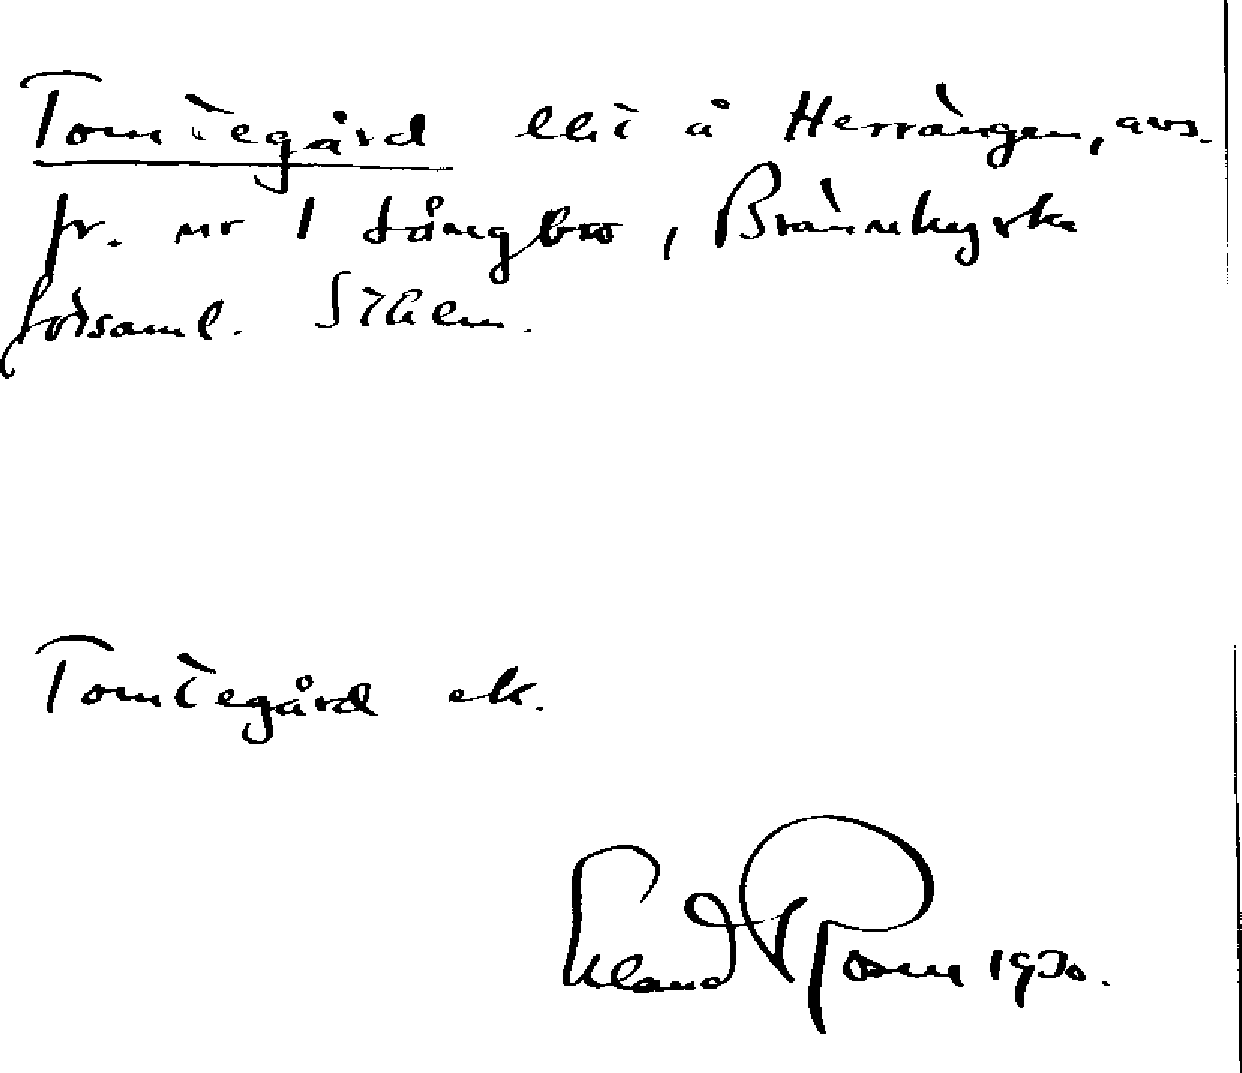 Tomtegård ...t å Herrängen, avs.
fr. nr 1 Långbro, Brännkyrka
förs​aml. Sthlm.
Tomtegård ek.
Erland Rosell 1930.